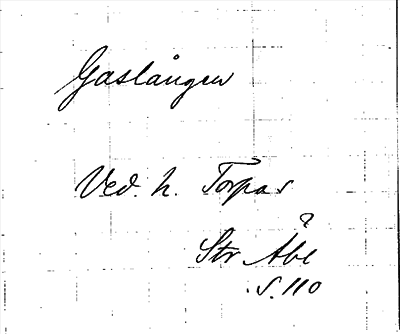 Gaslången
Ved. h. Torpas
?
Str Åbe
s. 110